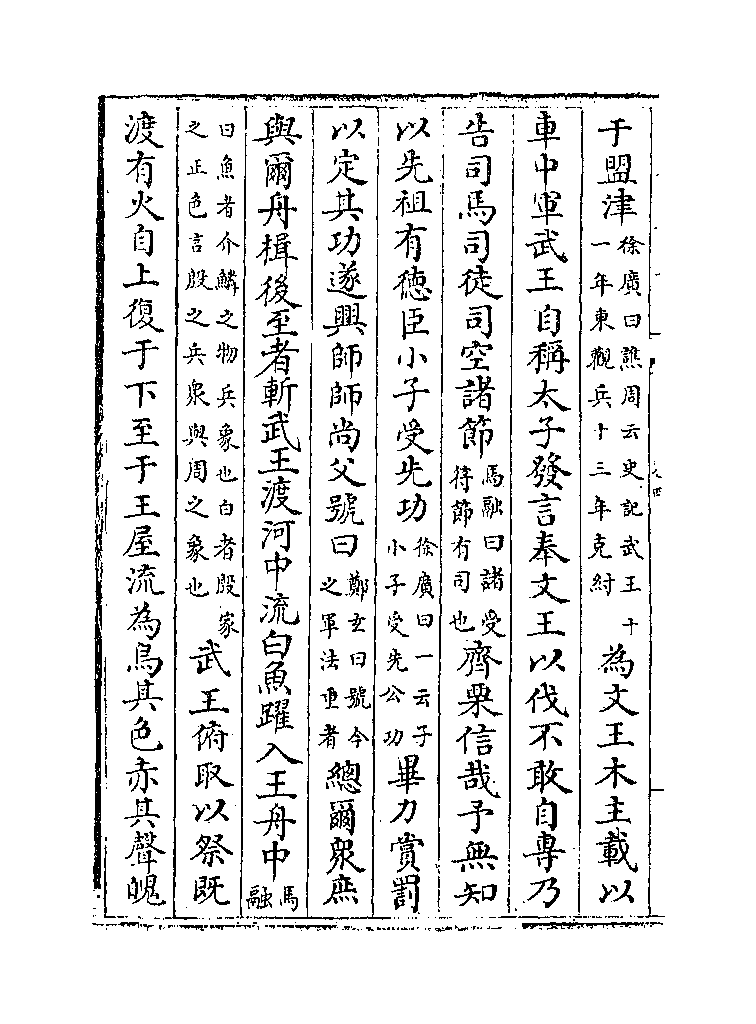 于盟津徐廣曰譙周云史記武王十一年東觀兵十三年克紂為文王木主載以
車中軍武王自稱太子發言奉文王以伐不敢自專乃
告司馬司徒司空諸節馬融曰諸受符節有司也齊栗信哉予無知
以先祖有德臣小子受先功徐廣曰一云予小子受先公功畢力賞罰
以定其功遂興師師尚父號曰鄭玄曰號令之軍法重者總爾衆庶
與爾舟楫後至者斬武王渡河中流白魚躍入王舟中馬融
曰魚者介鱗之物兵象也白者殷家之正色言殷之兵衆與周之象也武王俯取以祭既
渡有火自上復于下至于王屋流為烏其色赤其聲魄